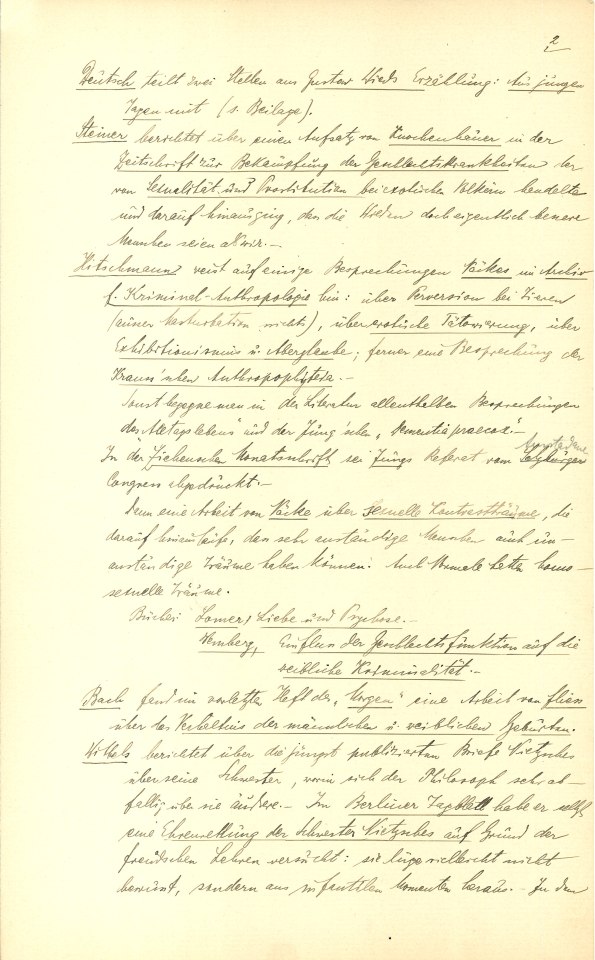 2
Deutsch teilt zwei Stellen aus Gustav Wieds Erzählung: Aus jungen
Tagen mit (s. Beilage).
Steiner berichtet über einen Aufsatz von Knochenhauer in der
Zeitschrift zur Bekämpfung der Geschlechtskrankheiten der
von Sexualität und Prostitution bei exotischen Völkern handelte
und darauf hinausging, dass die Wilden doch eigentlich bessere
Menschen seien als wir.—
Hitschmann weist auf einige Besprechungen Näckes im Archiv
f. Kriminal-Anthropologie hin: über Perversion bei Tieren
(ausser Masturbation nichts), über erotische Tätowierung, über
Exhibitionismus u. Aberglaube; ferner eine Besprechung der
Krauss'schen Anthropophyteia.—
Sonst begegne man in der Literatur allenthalben Besprechungen
des Alltagslebens und der Jung'schen „Dementia praecox.—
In der Ziehenschen Monatsschrift sei Jungs Referat vom Amsterdamer Salzburger
Congress abgedruckt.—
Dann eine Arbeit von Näcke über sexuelle Kontrastträume, die
darauf hinauslaufe, dass sehr anständige Menschen auch un-
anständige Träume haben können. Auch Normale hätten homo-
sexuelle Träume.
Bücher: Lomer, Liebe und Psychose.—
Wemberg, Einfluss der Geschlechtsfunktion auf die
weibliche Kriminalität.—
Bach fand im vorletzten Heft des „Morgen" eine Arbeit von Fliess
über das Verhältnis der männlichen u. weiblichen Geburten.
Wittels berichtet über die jüngst publizierten Briefe Nietzsches
über seine Schwester, worin sich der Philosoph sehr ab-
fällig über sie äussere.— Im Berliner Tagblatt habe er selbst
eine Ehrenrettung der Schwester Nietzsches auf Grund der
freudschen Lehren versucht: sie lüge vielleicht nicht
bewusst, sondern aus infantilen Momenten heraus.— In dem